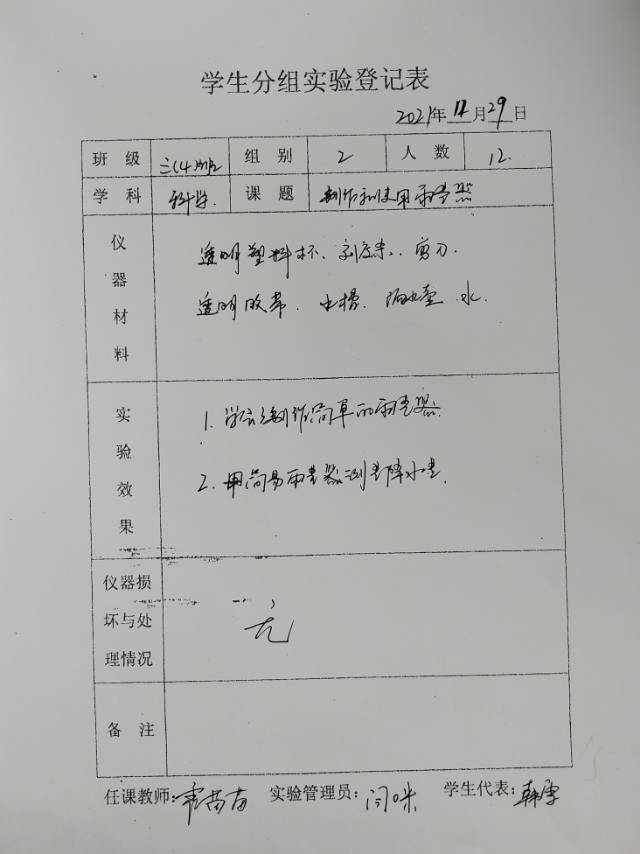 学生分组实验登记表
2021年 11 月 29 日
班 级 三(4)班 组 别 2 人 数 12.
学 科 科学 课 题 制作和使用雨量器
仪器材料
透明塑料杯、刻度条、剪刀
透明胶带、水槽、洒水壶、水.
实验效果
1. 学会制作简单的雨量器.
2. 用简易雨量器测量降水量.
仪器损坏与处理情况
无
备 注
任课教师: 苗苗 实验管理员: 闫 学生代表: 韩